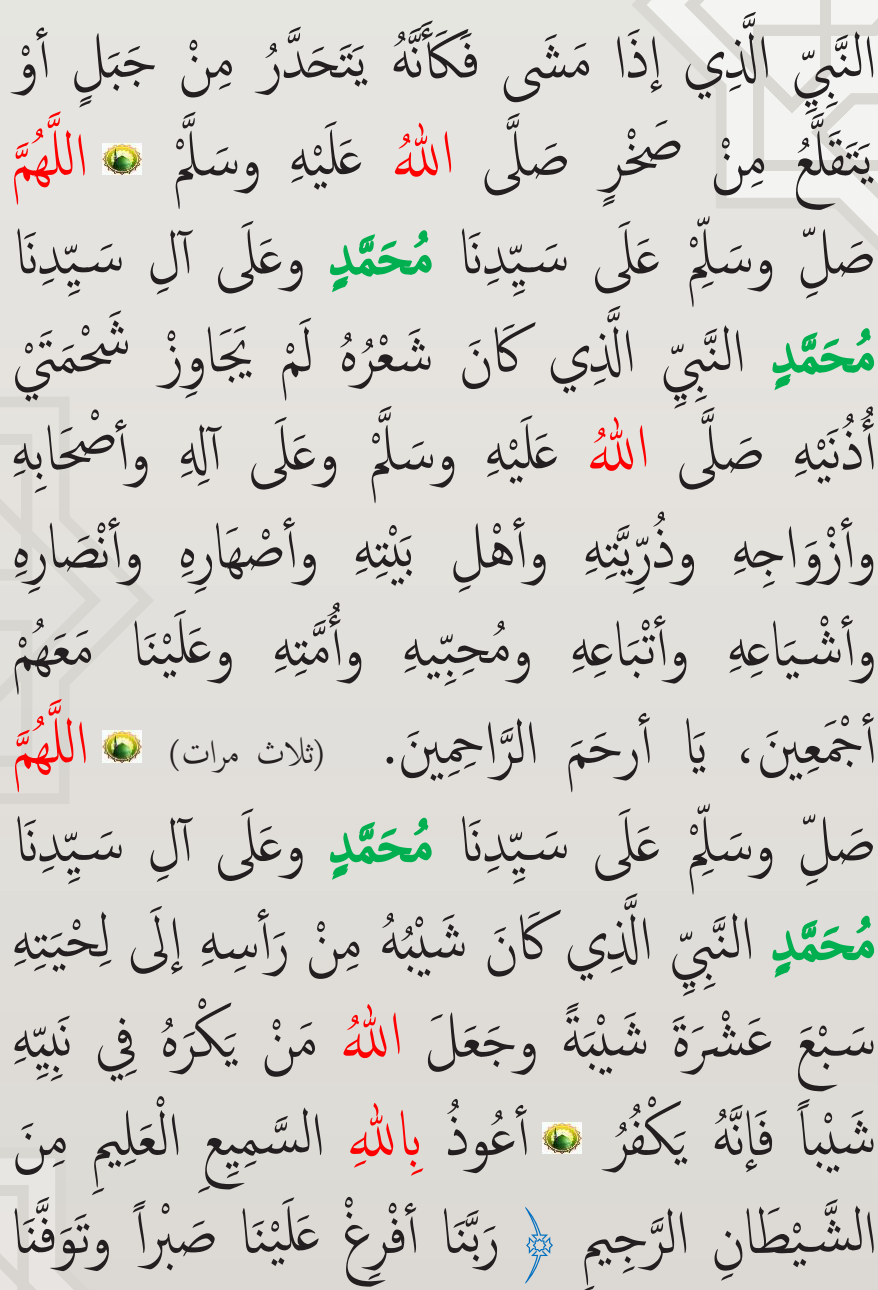 النَّبِيِّ الَّذِي إذَا مَشَى فَكَأَنَّهُ يَتَحَدَّرُ مِنْ جَبَلٍ أوْ
يَتَقَلَّعُ مِنْ صَخْرٍ صَلَّى اللهُ عَلَيْهِ وسَلَّمْ اللَّهُمَّ
صَلِّ وسَلِّمْ عَلَى سَيِّدِنَا مُحَمَّدٍ وعَلَى آلِ سَيِّدِنَا
مُحَمَّدٍ النَّبِيِّ الَّذِي كَانَ شَعْرُهُ لَمْ يَجَاوِزْ شَحْمَتَيْ
أُذُنَيْهِ صَلَّى اللهُ عَلَيْهِ وسَلَّمْ وعَلَى آلِهِ وأصْحَابِهِ
وأزْوَاجِهِ وذُرِّيَّتِهِ وأهْلِ بَيْتِهِ وأصْهَارِهِ وأنْصَارِهِ
وأشْيَاعِهِ وأتْبَاعِهِ ومُحِبِّيهِ وأُمَّتِهِ وعَلَيْنَا مَعَهُمْ
أجْمَعِينَ، يَا أرحَمَ الرَّاحِمِينَ. (ثلاث مرات) اللَّهُمَّ
صَلِّ وسَلِّمْ عَلَى سَيِّدِنَا مُحَمَّدٍ وعَلَى آلِ سَيِّدِنَا
مُحَمَّدٍ النَّبِيِّ الَّذِي كَانَ شَيْبُهُ مِنْ رَأسِهِ إلَى لِحْيَتِهِ
سَبْعَ عَشْرَةَ شَيْبَةً وجَعَلَ اللهُ مَنْ يَكْرَهُ فِي نَبِيِّهِ
شَيْباً فَإنَّهُ يَكْفُرُ أعُوذُ بِاللهِ السَّمِيعِ الْعَلِيمِ مِنَ
الشَّيْطَانِ الرَّجِيمِ ﴿ رَبَّنَا أفْرِغْ عَلَيْنَا صَبْراً وتَوَفَّنَا